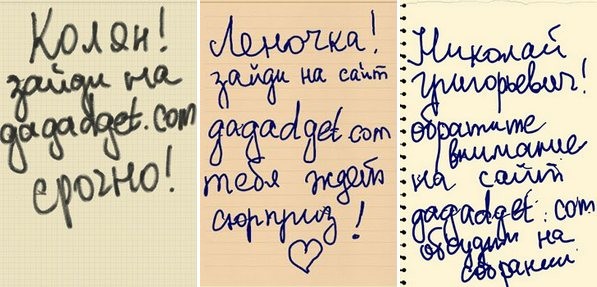 Колян!
зайди на
gagadget.com
срочно!
Леночка!
зайди на сайт
gagadget.com
тебя ждёт
сюрприз!
Николай
Григорьевич!
обратите
внимание
на сайт
gagadget.com
обсудим на
собрании.